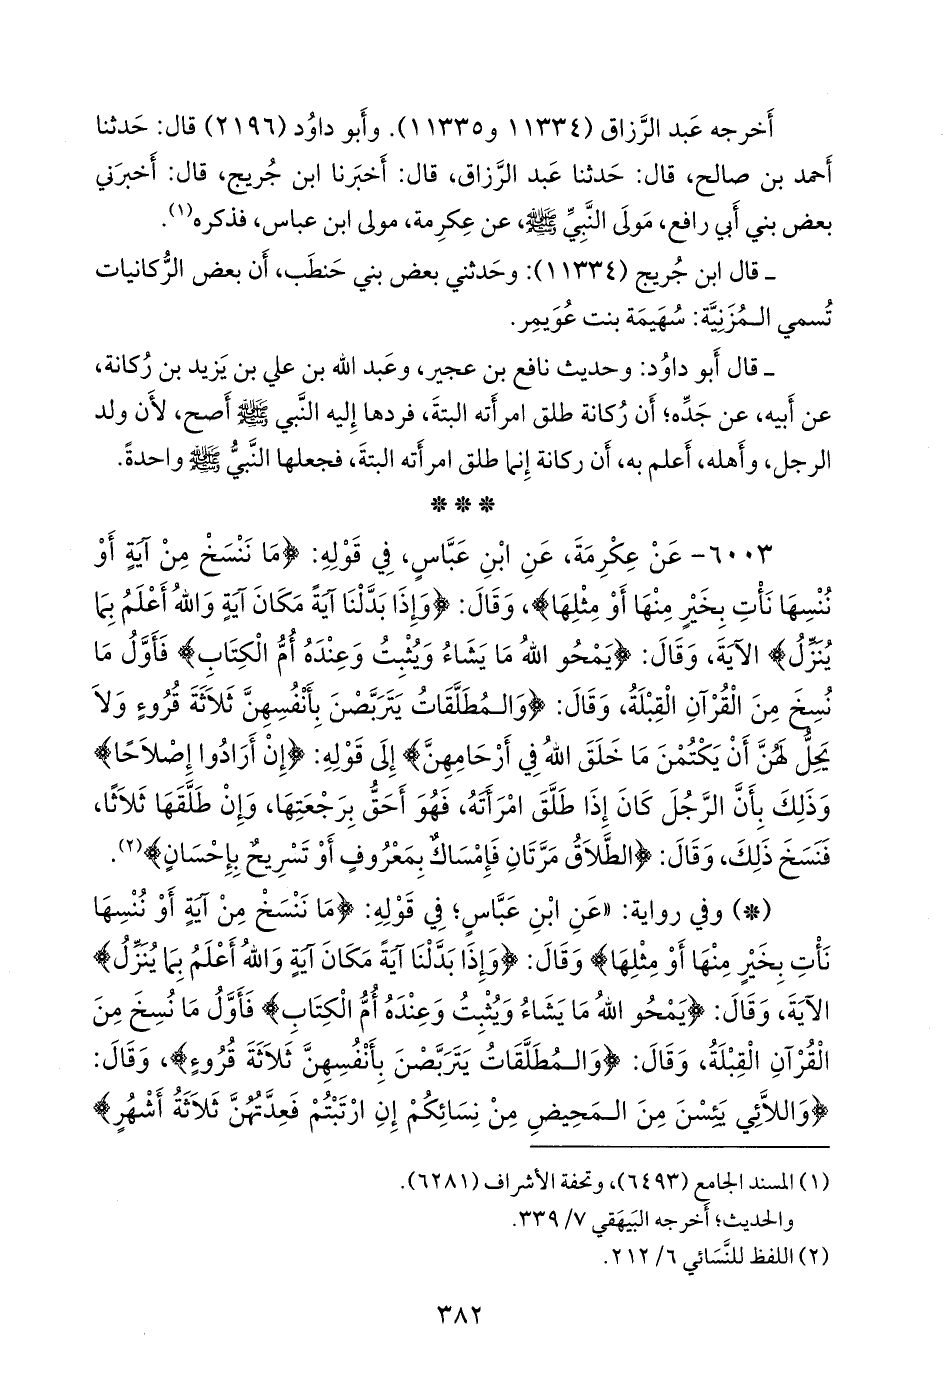 أَخرجه عَبد الرَّزاق (١١٣٣٤ و١١٣٣٥). وأَبو داوُد (٢١٩٦) قال: حَدثنا
أَحمد بن صالح، قال: حَدثنا عَبد الرَّزاق، قال: أَخبَرنا ابن جُريج، قال: أَخبرَني
بعض بني أَبي رافع، مَولَى النَّبيِّ ﷺ، عن عِكرِمة، مولى ابن عباس، فذكره(١).
ـ قال ابن جُريج (١١٣٣٤): وحَدثني بعض بني حَنطَب، أَن بعض الرُّكانيات
تُسمي الـمُزَنِيَّة: سُهَيمَة بنت عُوَيمِر.
ـ قال أَبو داوُد: وحديث نافع بن عجير، وعَبد الله بن علي بن يَزيد بن رُكانة،
عن أَبيه، عن جَدِّه؛ أَن رُكانة طلق امرأَته البتةَ، فردها إِليه النَّبي ﷺ أَصح، لأَن ولد
الرجل، وأَهله، أَعلم به، أَن ركانة إِنما طلق امرأَته البتةَ، فجعلها النَّبيُّ ﷺ واحدةً.
* * *
٦٠٠٣- عَنْ عِكْرِمَةَ، عَنِ ابْنِ عَبَّاسٍ، فِي قَوْلِهِ: ﴿مَا نَنْسَخْ مِنْ آيَةٍ أَوْ
نُنْسِهَا نَأْتِ بِخَيْرٍ مِنْهَا أَوْ مِثْلِهَا﴾، وَقَالَ: ﴿وَإِذَا بَدَّلْنَا آيَةً مَكَانَ آيَةٍ وَاللهُ أَعْلَمُ بِمَا
يُنَزِّلُ﴾ الآيَةَ، وَقَالَ: ﴿يَمْحُو اللهُ مَا يَشَاءُ وَيُثْبِتُ وَعِنْدَهُ أُمُّ الْكِتَابِ﴾ فَأَوَّلُ مَا
نُسِخَ مِنَ الْقُرْآنِ الْقِبْلَةُ، وَقَالَ: ﴿وَالـمُطَلَّقَاتُ يَتَرَبَّصْنَ بِأَنْفُسِهِنَّ ثَلاَثَةَ قُرُوءٍ وَلاَ
يَحِلُّ لَهُنَّ أَنْ يَكْتُمْنَ مَا خَلَقَ اللهُ فِي أَرْحَامِهِنَّ﴾ إِلَى قَوْلِهِ: ﴿إِنْ أَرَادُوا إِصْلاَحًا﴾
وَذَلِكَ بِأَنَّ الرَّجُلَ كَانَ إِذَا طَلَّقَ امْرَأَتَهُ، فَهُوَ أَحَقُّ بِرَجْعَتِهَا، وَإِنْ طَلَّقَهَا ثَلاَثًا،
فَنَسَخَ ذَلِكَ، وَقَالَ: ﴿الطَّلاَقُ مَرَّتَانِ فَإِمْسَاكٌ بِمَعْرُوفٍ أَوْ تَسْرِيحٌ بِإِحْسَانٍ﴾(٢).
(*) وفي رواية: «عَنِ ابْنِ عَبَّاسٍ؛ فِي قَوْلِهِ: ﴿مَا نَنْسَخْ مِنْ آيَةٍ أَوْ نُنْسِهَا
نَأْتِ بِخَيْرٍ مِنْهَا أَوْ مِثْلِهَا﴾ وَقَالَ: ﴿وَإِذَا بَدَّلْنَا آيَةً مَكَانَ آيَةٍ وَاللهُ أَعْلَمُ بِمَا يُنَزِّلُ﴾
الآيَةَ، وَقَالَ: ﴿يَمْحُو اللهُ مَا يَشَاءُ وَيُثْبِتُ وَعِنْدَهُ أُمُّ الْكِتَابِ﴾ فَأَوَّلُ مَا نُسِخَ مِنَ
الْقُرْآنِ الْقِبْلَةُ، وَقَالَ: ﴿وَالـمُطَلَّقَاتُ يَتَرَبَّصْنَ بِأَنْفُسِهِنَّ ثَلاَثَةَ قُرُوءٍ﴾، وَقَالَ:
﴿وَاللاَّئِي يَئِسْنَ مِنَ الـمَحِيضِ مِنْ نِسَائِكُمْ إِنِ ارْتَبْتُمْ فَعِدَّتُهُنَّ ثَلاَثَةُ أَشْهُرٍ﴾
(١) المسند الجامع (٦٤٩٣)، وتحفة الأشراف (٦٢٨١).
والحديث؛ أَخرجه البَيهَقي ٧/ ٣٣٩.
(٢) اللفظ للنَّسَائي ٦/ ٢١٢.
٣٨٢